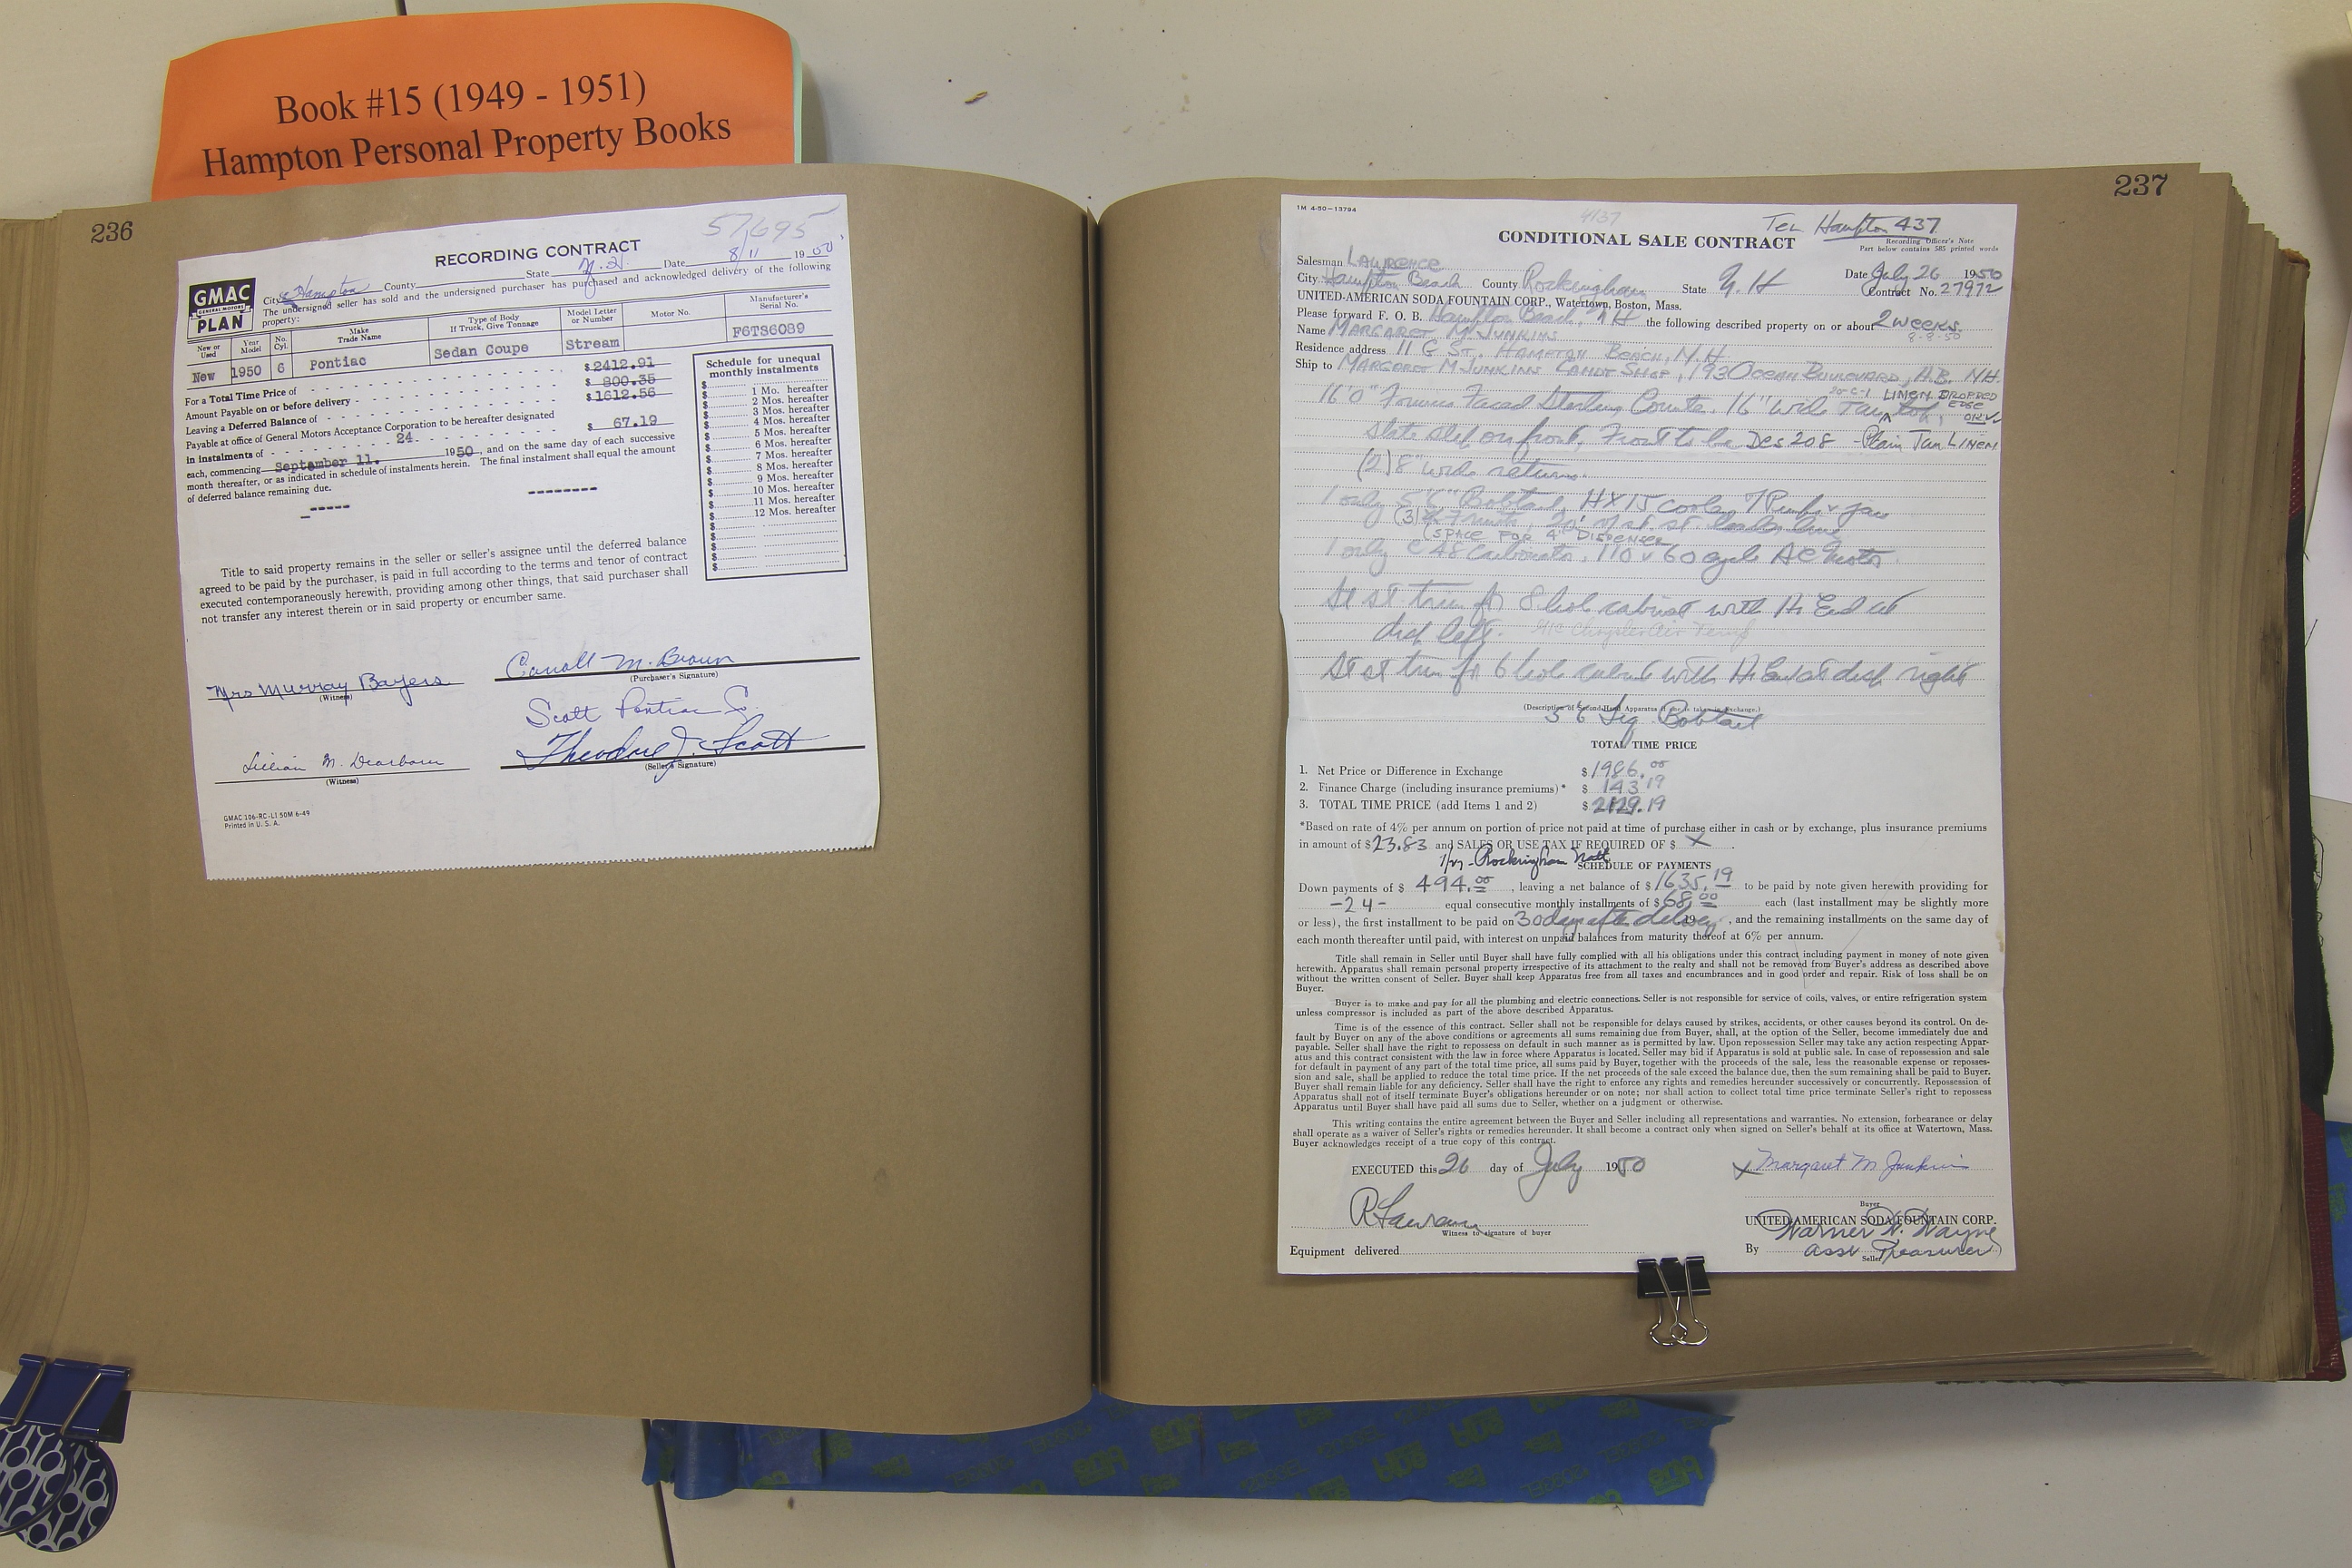 Book #15 (1949 - 1951)
Hampton Personal Property Books
236
57695
RECORDING CONTRACT
GMAC
GENERAL MOTORS
PLAN
City Hampton County State N.H. Date 8/11 1950
The undersigned seller has sold and the undersigned purchaser has purchased and acknowledged delivery of the following
property:
New or Used Year Model No. Cyl. Make Trade Name Type of Body If Truck, Give Tonnage Model Letter or Number Motor No. Manufacturer's Serial No.
New 1950 6 Pontiac Sedan Coupe Stream F6TS6089
For a Total Time Price of $2412.91
Amount Payable on or before delivery $ 800.35
Leaving a Deferred Balance of $1612.56
Payable at office of General Motors Acceptance Corporation to be hereafter designated
in instalments of 24 $ 67.19
each, commencing September 11, 1950, and on the same day of each successive
month thereafter, or as indicated in schedule of instalments herein. The final instalment shall equal the amount
of deferred balance remaining due.
Schedule for unequal
monthly instalments
$ 1 Mo. hereafter
$ 2 Mos. hereafter
$ 3 Mos. hereafter
$ 4 Mos. hereafter
$ 5 Mos. hereafter
$ 6 Mos. hereafter
$ 7 Mos. hereafter
$ 8 Mos. hereafter
$ 9 Mos. hereafter
$ 10 Mos. hereafter
$ 11 Mos. hereafter
$ 12 Mos. hereafter
$
$
$
$
Title to said property remains in the seller or seller's assignee until the deferred balance
agreed to be paid by the purchaser, is paid in full according to the terms and tenor of contract
executed contemporaneously herewith, providing among other things, that said purchaser shall
not transfer any interest therein or in said property or encumber same.
Mrs Murray Bayers Carroll M. Brown
(Witness) (Purchaser's Signature)
Scott Pontiac Co.
Lillian M. Dearborn Theodore J. Scott
(Witness) (Seller's Signature)
GMAC 106-RC-L1 50M 6-49
Printed in U. S. A.
237
1M 4-50-13794
4137
Hampton 437
CONDITIONAL SALE CONTRACT
Recording Officer's Note
Part below contains 585 printed words
Salesman LAWRENCE
City Hampton Beach County Rockingham State N.H Date July 26 1950
Contract No. 27972
UNITED-AMERICAN SODA FOUNTAIN CORP., Watertown, Boston, Mass.
Please forward F. O. B. Hampton Beach, NH the following described property on or about 2 weeks
8-9-50
Name MARGARET M JUNKINS
Residence address 11 G ST., HAMPTON BEACH, N.H.
Ship to MARGARET M JUNKINS CANDY SHOP, 193 OCEAN BOULEVARD, H.B. NH.
16'0" Formica Faced Sterling Counter. 16" wide Tan LINEN DROPPED EDGE top,
slate slef on front, Front to be Des 208 - Plain Tan LINEN
(2) 8" wide returns.
1 only 5'6" Bobtail, HX15 cooler, 7 Pumps & jars
(SPACE FOR 4" DISPENSER
1 only C48 Carbonator, 110 v 60 cycle AC Motor
St st trim for 8 hole cabinet with H. End at
disp left. Chrysler Air Temp
St st trim for 6 hole cabinet with H. End at disp right
(Description of Second-Hand Apparatus if one is taken in Exchange.)
5 6 Liq. Bobtail
TOTAL TIME PRICE
1. Net Price or Difference in Exchange $ 1986.00
2. Finance Charge (including insurance premiums)* $ 143.19
3. TOTAL TIME PRICE (add Items 1 and 2) $ 2129.19
*Based on rate of 4% per annum on portion of price not paid at time of purchase either in cash or by exchange, plus insurance premiums
in amount of $23.83 and SALES OR USE TAX IF REQUIRED OF $ X
Rockingham Natl
SCHEDULE OF PAYMENTS
Down payments of $ 494.00, leaving a net balance of $1635.19 to be paid by note given herewith providing for
-24- equal consecutive monthly installments of $68.00 each (last installment may be slightly more
or less), the first installment to be paid on 30 days after delivery, and the remaining installments on the same day of
each month thereafter until paid, with interest on unpaid balances from maturity thereof at 6% per annum.
Title shall remain in Seller until Buyer shall have fully complied with all his obligations under this contract including payment in money of note given
herewith. Apparatus shall remain personal property irrespective of its attachment to the realty and shall not be removed from Buyer's address as described above
without the written consent of Seller. Buyer shall keep Apparatus free from all taxes and encumbrances and in good order and repair. Risk of loss shall be on
Buyer.
Buyer is to make and pay for all the plumbing and electric connections. Seller is not responsible for service of coils, valves, or entire refrigeration system
unless compressor is included as part of the above described Apparatus.
Time is of the essence of this contract. Seller shall not be responsible for delays caused by strikes, accidents, or other causes beyond its control. On de-
fault by Buyer on any of the above conditions or agreements all sums remaining due from Buyer, shall, at the option of the Seller, become immediately due and
payable. Seller shall have the right to repossess on default in such manner as is permitted by law. Upon repossession Seller may take any action respecting Appar-
atus and this contract consistent with the law in force where Apparatus is located. Seller may bid if Apparatus is sold at public sale. In case of repossession and sale
for default in payment of any part of the total time price, all sums paid by Buyer, together with the proceeds of the sale, less the reasonable expense or reposses-
sion and sale, shall be applied to reduce the total time price. If the net proceeds of the sale exceed the balance due, then the sum remaining shall be paid to Buyer.
Buyer shall remain liable for any deficiency. Seller shall have the right to enforce any rights and remedies hereunder successively or concurrently. Repossession of
Apparatus shall not of itself terminate Buyer's obligations hereunder or on note; nor shall action to collect total time price terminate Seller's right to repossess
Apparatus until Buyer shall have paid all sums due to Seller, whether on a judgment or otherwise.
This writing contains the entire agreement between the Buyer and Seller including all representations and warranties. No extension, forbearance or delay
shall operate as a waiver of Seller's rights or remedies hereunder. It shall become a contract only when signed on Seller's behalf at its office at Watertown, Mass.
Buyer acknowledges receipt of a true copy of this contract.
EXECUTED this 26 day of July 1950 X Margaret M Junkins
Buyer
R Lawrence UNITED-AMERICAN SODA FOUNTAIN CORP.
Witness to signature of buyer Warner W. Wayne
Equipment delivered By Asst Treasurer
Seller